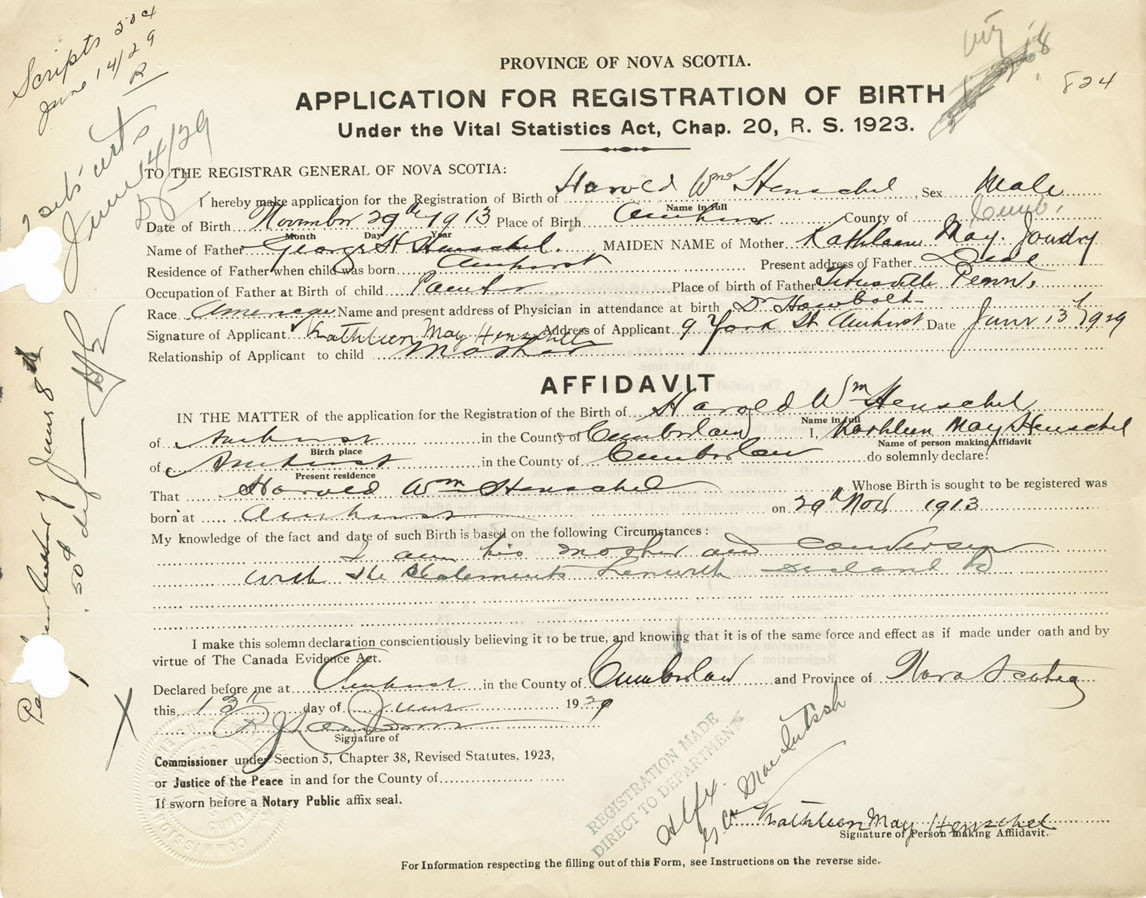 Scripts 50¢
June 14/29
R
June 14/29
824
PROVINCE OF NOVA SCOTIA.
APPLICATION FOR REGISTRATION OF BIRTH
Under the Vital Statistics Act, Chap. 20, R. S. 1923.
TO THE REGISTRAR GENERAL OF NOVA SCOTIA:
I hereby make application for the Registration of Birth of Harold Wm Henschel, Sex Male
Name in full
Date of Birth November 29th 1913 Place of Birth Amherst County of Cumb.
Month Day Year
Name of Father George H Henschel. MAIDEN NAME of Mother Kathleen May Joudry
Residence of Father when child was born Amherst Present address of Father
Occupation of Father at Birth of child Painter Place of birth of Father Titusville Penn.
Race American Name and present address of Physician in attendance at birth Dr
Signature of Applicant Kathleen May Henschel Address of Applicant 9 York St Amherst Date June 13th 1929
Relationship of Applicant to child Mother
AFFIDAVIT
IN THE MATTER of the application for the Registration of the Birth of Harold Wm Henschel
Name in full
of Amherst in the County of Cumberland I, Kathleen May Henschel
Birth place Name of person making Affidavit
of Amherst in the County of Cumberland do solemnly declare:
Present residence
That Harold Wm Henschel Whose Birth is sought to be registered was
born at Amherst on 29th Nov 1913
My knowledge of the fact and date of such Birth is based on the following Circumstances:
I am his mother and
with the Statements herewith
I make this solemn declaration conscientiously believing it to be true, and knowing that it is of the same force and effect as if made under oath and by
virtue of The Canada Evidence Act.
Declared before me at Amherst in the County of Cumberland and Province of Nova Scotia
this 13th day of June 1929
Signature of
Commissioner under Section 5, Chapter 38, Revised Statutes, 1923,
or Justice of the Peace in and for the County of
If sworn before a Notary Public affix seal.
REGISTRATION MADE
DIRECT TO DEPARTMENT
Hlfx.
MacIntosh
Kathleen May Henschel
Signature of Person making Affidavit.
For Information respecting the filling out of this Form, see Instructions on the reverse side.